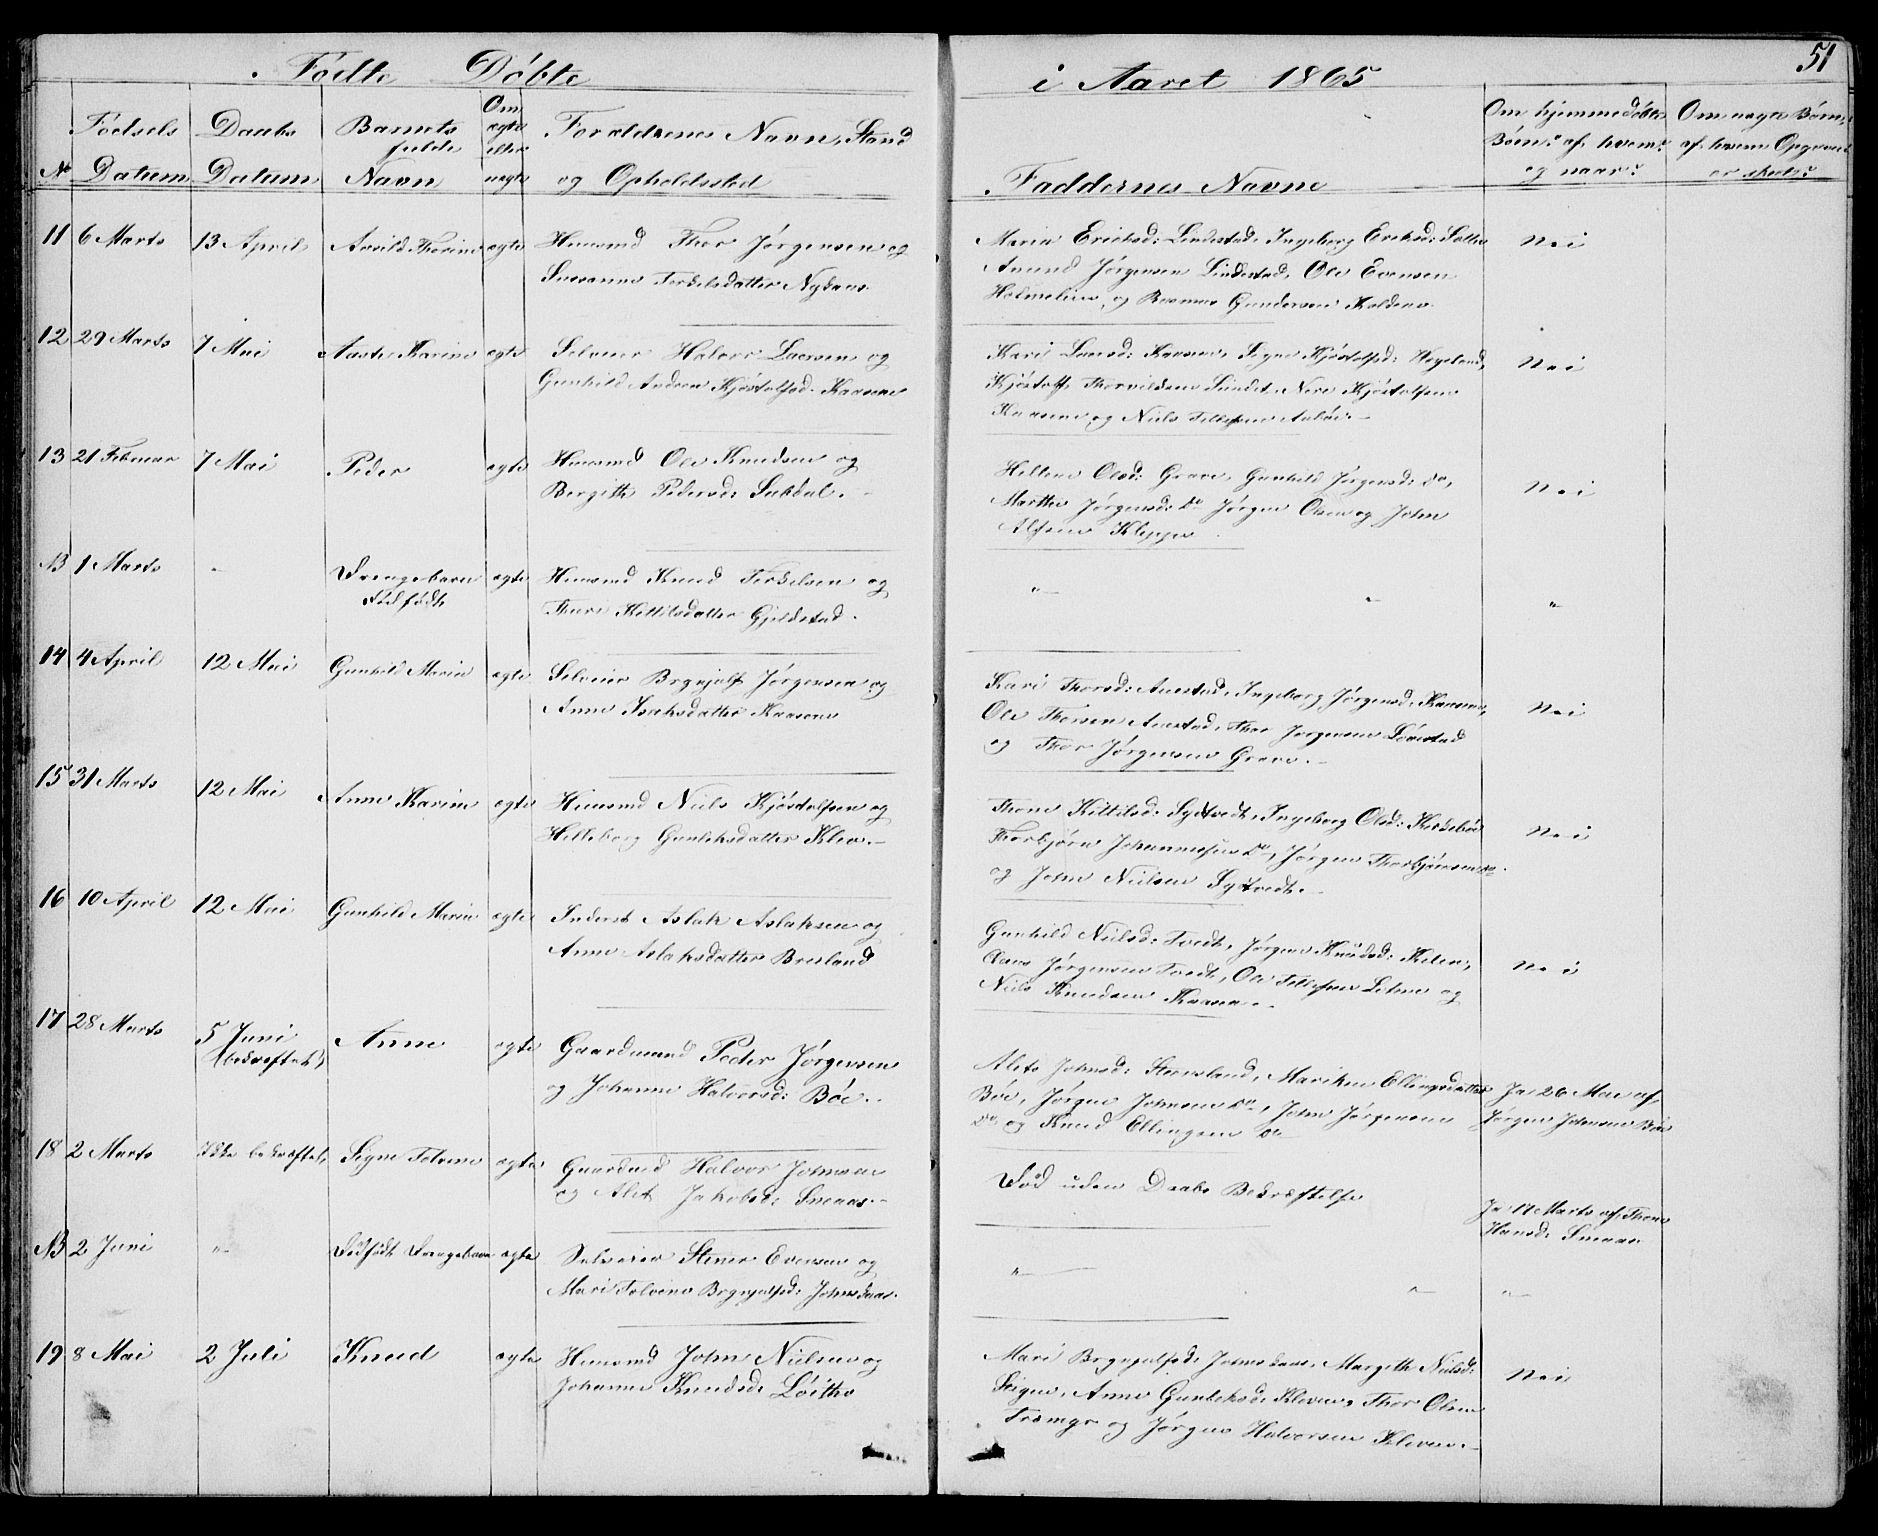 Fødte Døbte
i Aaret 1865
51
No
Fødsels Datum
Daabs Datum
Barnets fulde Navn
Om ægte eller uægte
Forældrenes Navn, Stand og Opholdssted
Faddernes Navne
Om hjemmedøbte Børn: af hvem? og naar?
Om uægte Børn, af hvem Opgivelse er skeet?
11 6 Marts 13 April Thorine ægte Huusmd Thor Jørgensen og
Susanne Terkelsdatter
Maria Ericksd: Lindestad, Ingeborg Ericksd:
Amund Jørgensen Lindestad, Ole Evensen
og Gundersen
Nei
12 29 Marts 7 Mai Aaste Karine ægte Selveier Halvor Laersen og
Gunhild Andrea Kjøstolfsd. Kaasene
Kari Laersd: Kaasene, Signe Kjøstolfsd: Høgeland,
Kjøstolf Thorvildsen Sundet, Kjøstolfsen
Kaasene og Niels Tellefsen
Nei
13 21 Februar 7 Mai Peder ægte Huusmd Ole Knudsen og
Bergith Pedersd:
Olsd: Grave, Gunhild Jørgensd: Do,
Marthe Jørgensd: Do Jørgen Olsen og John
Kleppe
Nei
NB 1 Marts " Drengebarn ægte Huusmd Knud Terkelsen og
Dødfødt
Thuri Kittilsdatter Gjeldstad.
" " "
14 4 April 12 Mai Gunhild Maria ægte Selveier Brynjulf Jørgensen og
Anne Isaksdatter Kaasene
Kari Thorsd: Aanestad, Ingeborg Jørgensd. Kaasene,
Ole Thorsen Aanestad, Thor Jørgensen
og Thor Jørgensen Grave.
Nei
15 31 Marts 12 Mai Anne Karine ægte Huusmd Niels Kjøstolfsen og
Helleborg Gunleksdatter Klev.
Thone Kittilsd: Sydtvedt, Ingeborg Olsd: Kirkebøe
Thorbjørn Johannesen Do, Jørgen Thorbjørnsen Do
og John Nielsen Sydtvedt.
Nei
16 10 April 12 Mai Gunhild Maria ægte Inderst Aslak Aslaksen og
Anne Aslaksdatter Bresland
Gunhild Nielsd: Tvedt, Jørgine Knudsd:
Jørgensen Tvedt, Ole Tellefsen og
Niels Knudsen Kaasen.
Nei
17 28 Marts 5 Juni Anne ægte Gaardmand Peder Jørgensen
(bekræftet)
og Johanne Halvorsd: Bøe.
Alete Johnsd: Stenesland, Mariken Ellingsdatter
Bøe, Jørgen Johnsen Do, John Jørgensen
Do og Knud Ellingsen Do
Ja 26 Mai af
Jørgen Johnsen Bøe
18 2 Marts Ikke bekræftet Signe Tolvine ægte Gaardmd Halvor Johnsen
og Alet Jakobsd: Smaas.
Død uden Daabs Bekræftelse
Ja 17 Marts af Thone
Hansd: Smaas
NB 2 Juni " Dødfødt Drengebarn ægte Selveier Stener Evensen og
Mari Tolvine Brynjulfsd: Johnsaas.
" " "
19 8 Mai 2 Juli Knud ægte Huusmd John Nielsen og
Johanne Knudsd: Løithe
Mari Brynjulfsd: Johnsaas, Margith Nielsd:
Anne Gunleksd: Kleven, Thor Olsen
og Jørgen Halvorsen Kleven.
Nei